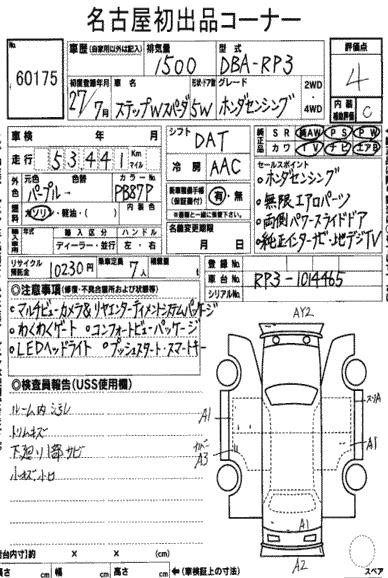 名古屋初出品コーナー
No. 60175
車歴(自家用以外は記入) 排気量 1500 型式 DBA-RP3
評価点 4
初度登録年月 27/7月 車名 ステップWスパーダ 形状・ドア数 5W グレード ホンダセンシング 2WD・4WD
内装補助評価 C
車検 年 月
シフト DAT
純正品 SR 純AW PS PW
カワ TV ナビ エアB
走行 53,441 Km マイル
冷房 AAC
セールスポイント
・ホンダセンシング
外色 元色 パープル→ 色替 カラーNo. PB87P
新車整備手帳(保証書付) 有・無
※後日一緒に提出して下さい。
・無限エアロパーツ
・両側パワースライドドア
・純正インターナビ・地デジTV
燃料 ガソリン・軽油・( ) 内装色
輸入車 年式 輸入区分 ハンドル
ディーラー・並行 左・右
名義変更期限 月 日
リサイクル預託金 10230円 乗車定員 7人 積載量 t
登録No.
車台No. RP3-1014465
シリアルNo.
◎注意事項(修復・不具合箇所および状態等)
・マルチビューカメラ&リヤエンターテイメントシステムパッケージ
・わくわくゲート ・コンフォートビューパッケージ
・LEDヘッドライト ・プッシュスタート・スマートキー
◎検査員報告(USS使用欄)
ルーム内ヨゴレ
トリムキズ
下廻り1部サビ
小キズ小凹
AY2
A1
スリA
A3
A1
A1
A2
荷台内寸)約 × × (cm)
長さ (cm) 幅 (cm) 高さ (cm) ←(車検証上の寸法)
スペア